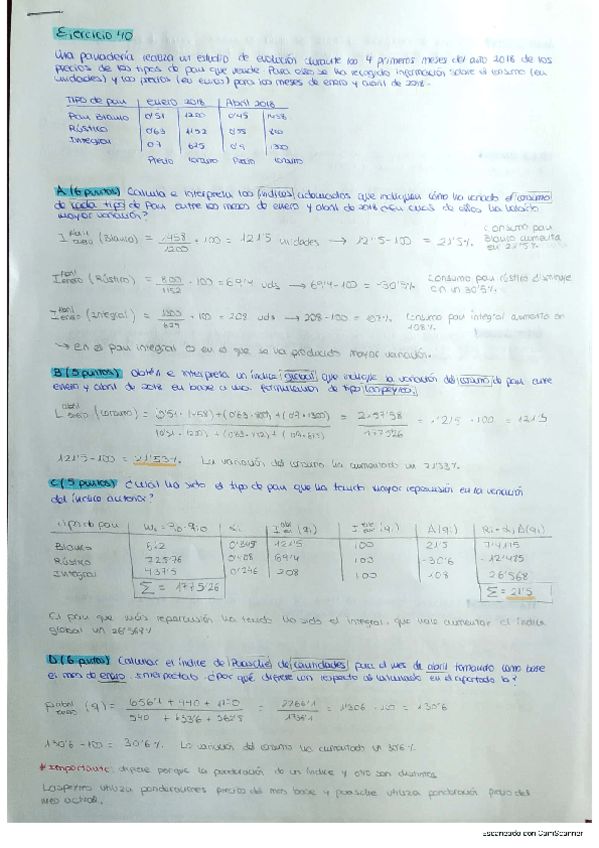 Ejercicio 40
Una panadería realiza un estudio de evolución durante los 4 primeros meses del año 2018 de los
precios de los tipos de pan que vende. Para ello se ha recogido información sobre el consumo (en
unidades) y los precios (en euros) para los meses de enero y abril de 2018.
TIPO de pan enero 2018 Abril 2018
Pan Blanco 0'51 1200 0'45 1458
Rústico 0'63 1152 0'55 800
Integral 0'7 625 0'9 1300
Precio consumo Precio consumo
A (6 puntos) Calcula e interpreta los índices adecuados que indiquen cómo ha variado el consumo
de cada tipo de pan entre los meses de enero y abril de 2018 ¿En cuál de ellos ha habido
mayor variación?
I abril enero (Blanco) = 1458 / 1200 · 100 = 121'5 unidades → 121'5-100 = 21'5% Consumo pan Blanco aumenta en 21'5%
I abril enero (Rústico) = 800 / 1152 · 100 = 69'4 uds → 69'4-100 = -30'5% Consumo pan rústico disminuye en un 30'5%
I abril enero (Integral) = · 100 = 208 uds → 208-100 = Consumo pan integral aumenta en 108%
→ en el pan integral es en el que se ha producido mayor variación.
B (5 puntos) obtén e interpreta un índice global que indique la variación del consumo de pan entre
enero y abril de 2018 en base a una formulación de tipo Laspeyres.
L abril enero (consumo) = (0'51 · 1458) + (0'63 · 800) + (0'7 · 1300) / (0'51 · 1200) + = = 1'215 · 100 = 121'5
121'5-100 = 21'53% La variación del consumo ha aumentado un
C (5 puntos) ¿Cuál ha sido el tipo de pan que ha tenido mayor repercusión en la variación
del índice anterior?
Tipo de pan
Blanco 612 0'345 121'5 100 21'5
Rústico 725'76 0'408 69'4 100 -30'6
Integral 437'5 0'246 208 100 108 26'568
Σ = 1775'26 Σ = 21'5
El pan que más repercusión ha tenido ha sido el integral, que hace aumentar el índice
global un 26'568%
D (6 puntos) Calcular el índice de Paasche de cantidades para el mes de abril tomando como base
el mes de enero. Interpretalo. ¿Por qué difiere con respecto al calculado en el apartado b?
P abril enero (q) = 656'1 + 440 + / 540 + 633'6 + 562'5 = = 1'306 · 100 = 130'6
130'6 - 100 = 30'6% La variación del consumo ha aumentado un 30'6%
* Importante: difiere porque la ponderación de un índice y otro son distintos
Laspeyres utiliza ponderaciones precio del mes base y paasche utiliza ponderación precio del
mes actual.
Escaneado con CamScanner